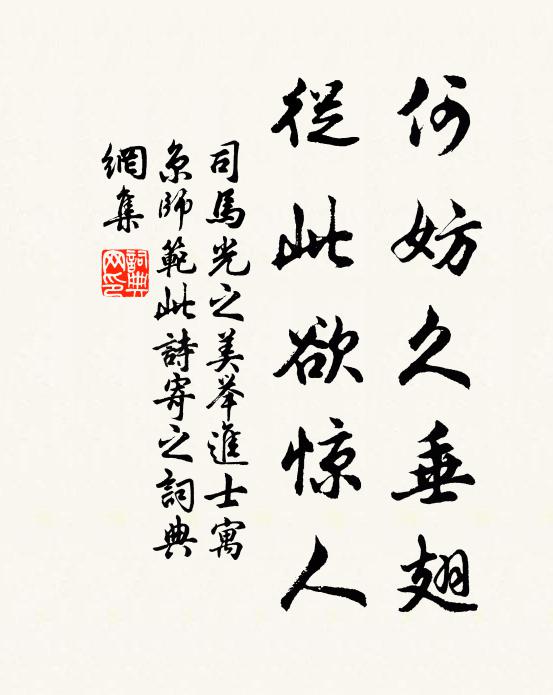 何妨久垂翅
從此欲惊人
司馬光之美举進士寓
京師範此詩寄之詞典
網集
詞典
网印